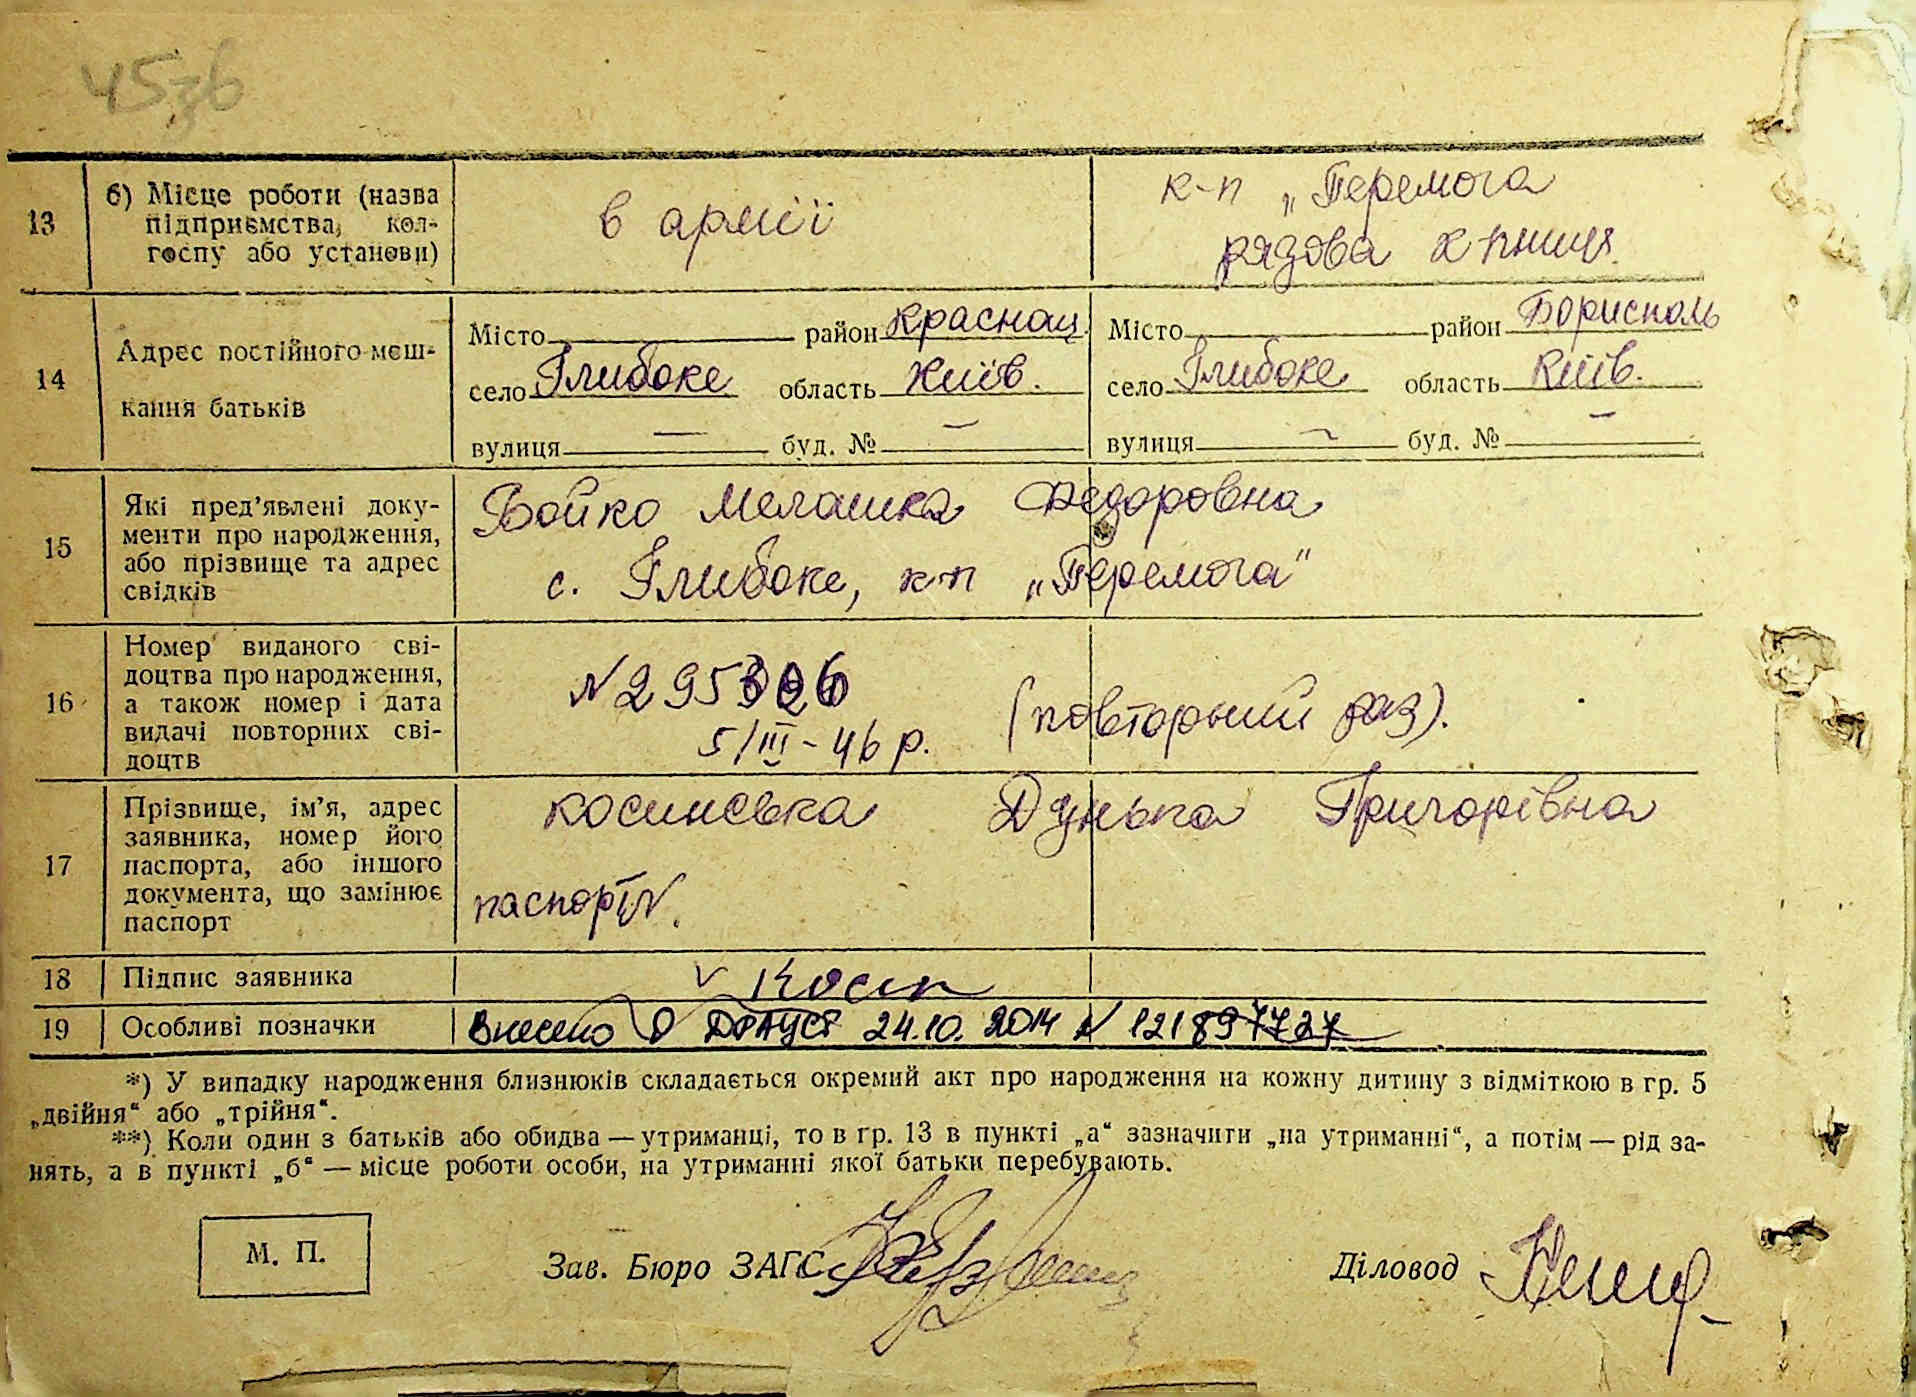 45зв
13 б) Місце роботи (назва підприємства, кол-госпу або установи) в армії к-п „Перемога рядова к-пниця.
14 Адрес постійного меш-кання батьків
Місто район Краснац. Місто район Бориспіль
село Глибоке область Київ. село Глибоке область Київ.
вулиця — буд. № — вулиця — буд. № —
15 Які пред'явлені доку-менти про народження, або прізвище та адрес свідків
Бойко Мелашка Федоровна
с. Глибоке, к-п „Перемога"
16 Номер виданого сві-доцтва про народження, а також номер і дата видачі повторних сві-доцтв
N 295306
5/III - 46 р. (повторний раз).
17 Прізвище, ім'я, адрес заявника, номер його паспорта, або іншого документа, що замінює паспорт
Косинська Дунька Григорівна
паспорт N.
18 Підпис заявника v Косин
19 Особливі позначки Внесено в ДРАЦСГ 24.10.2014 N 121897727
*) У випадку народження близнюків складається окремий акт про народження на кожну дитину з відміткою в гр. 5
„двійня“ або „трійня“.
**) Коли один з батьків або обидва — утриманці, то в гр. 13 в пункті „а“ зазначити „на утриманні“, а потім — рід за-
нять, а в пункті „б“ — місце роботи особи, на утриманні якої батьки перебувають.
М. П. Зав. Бюро ЗАГС Діловод